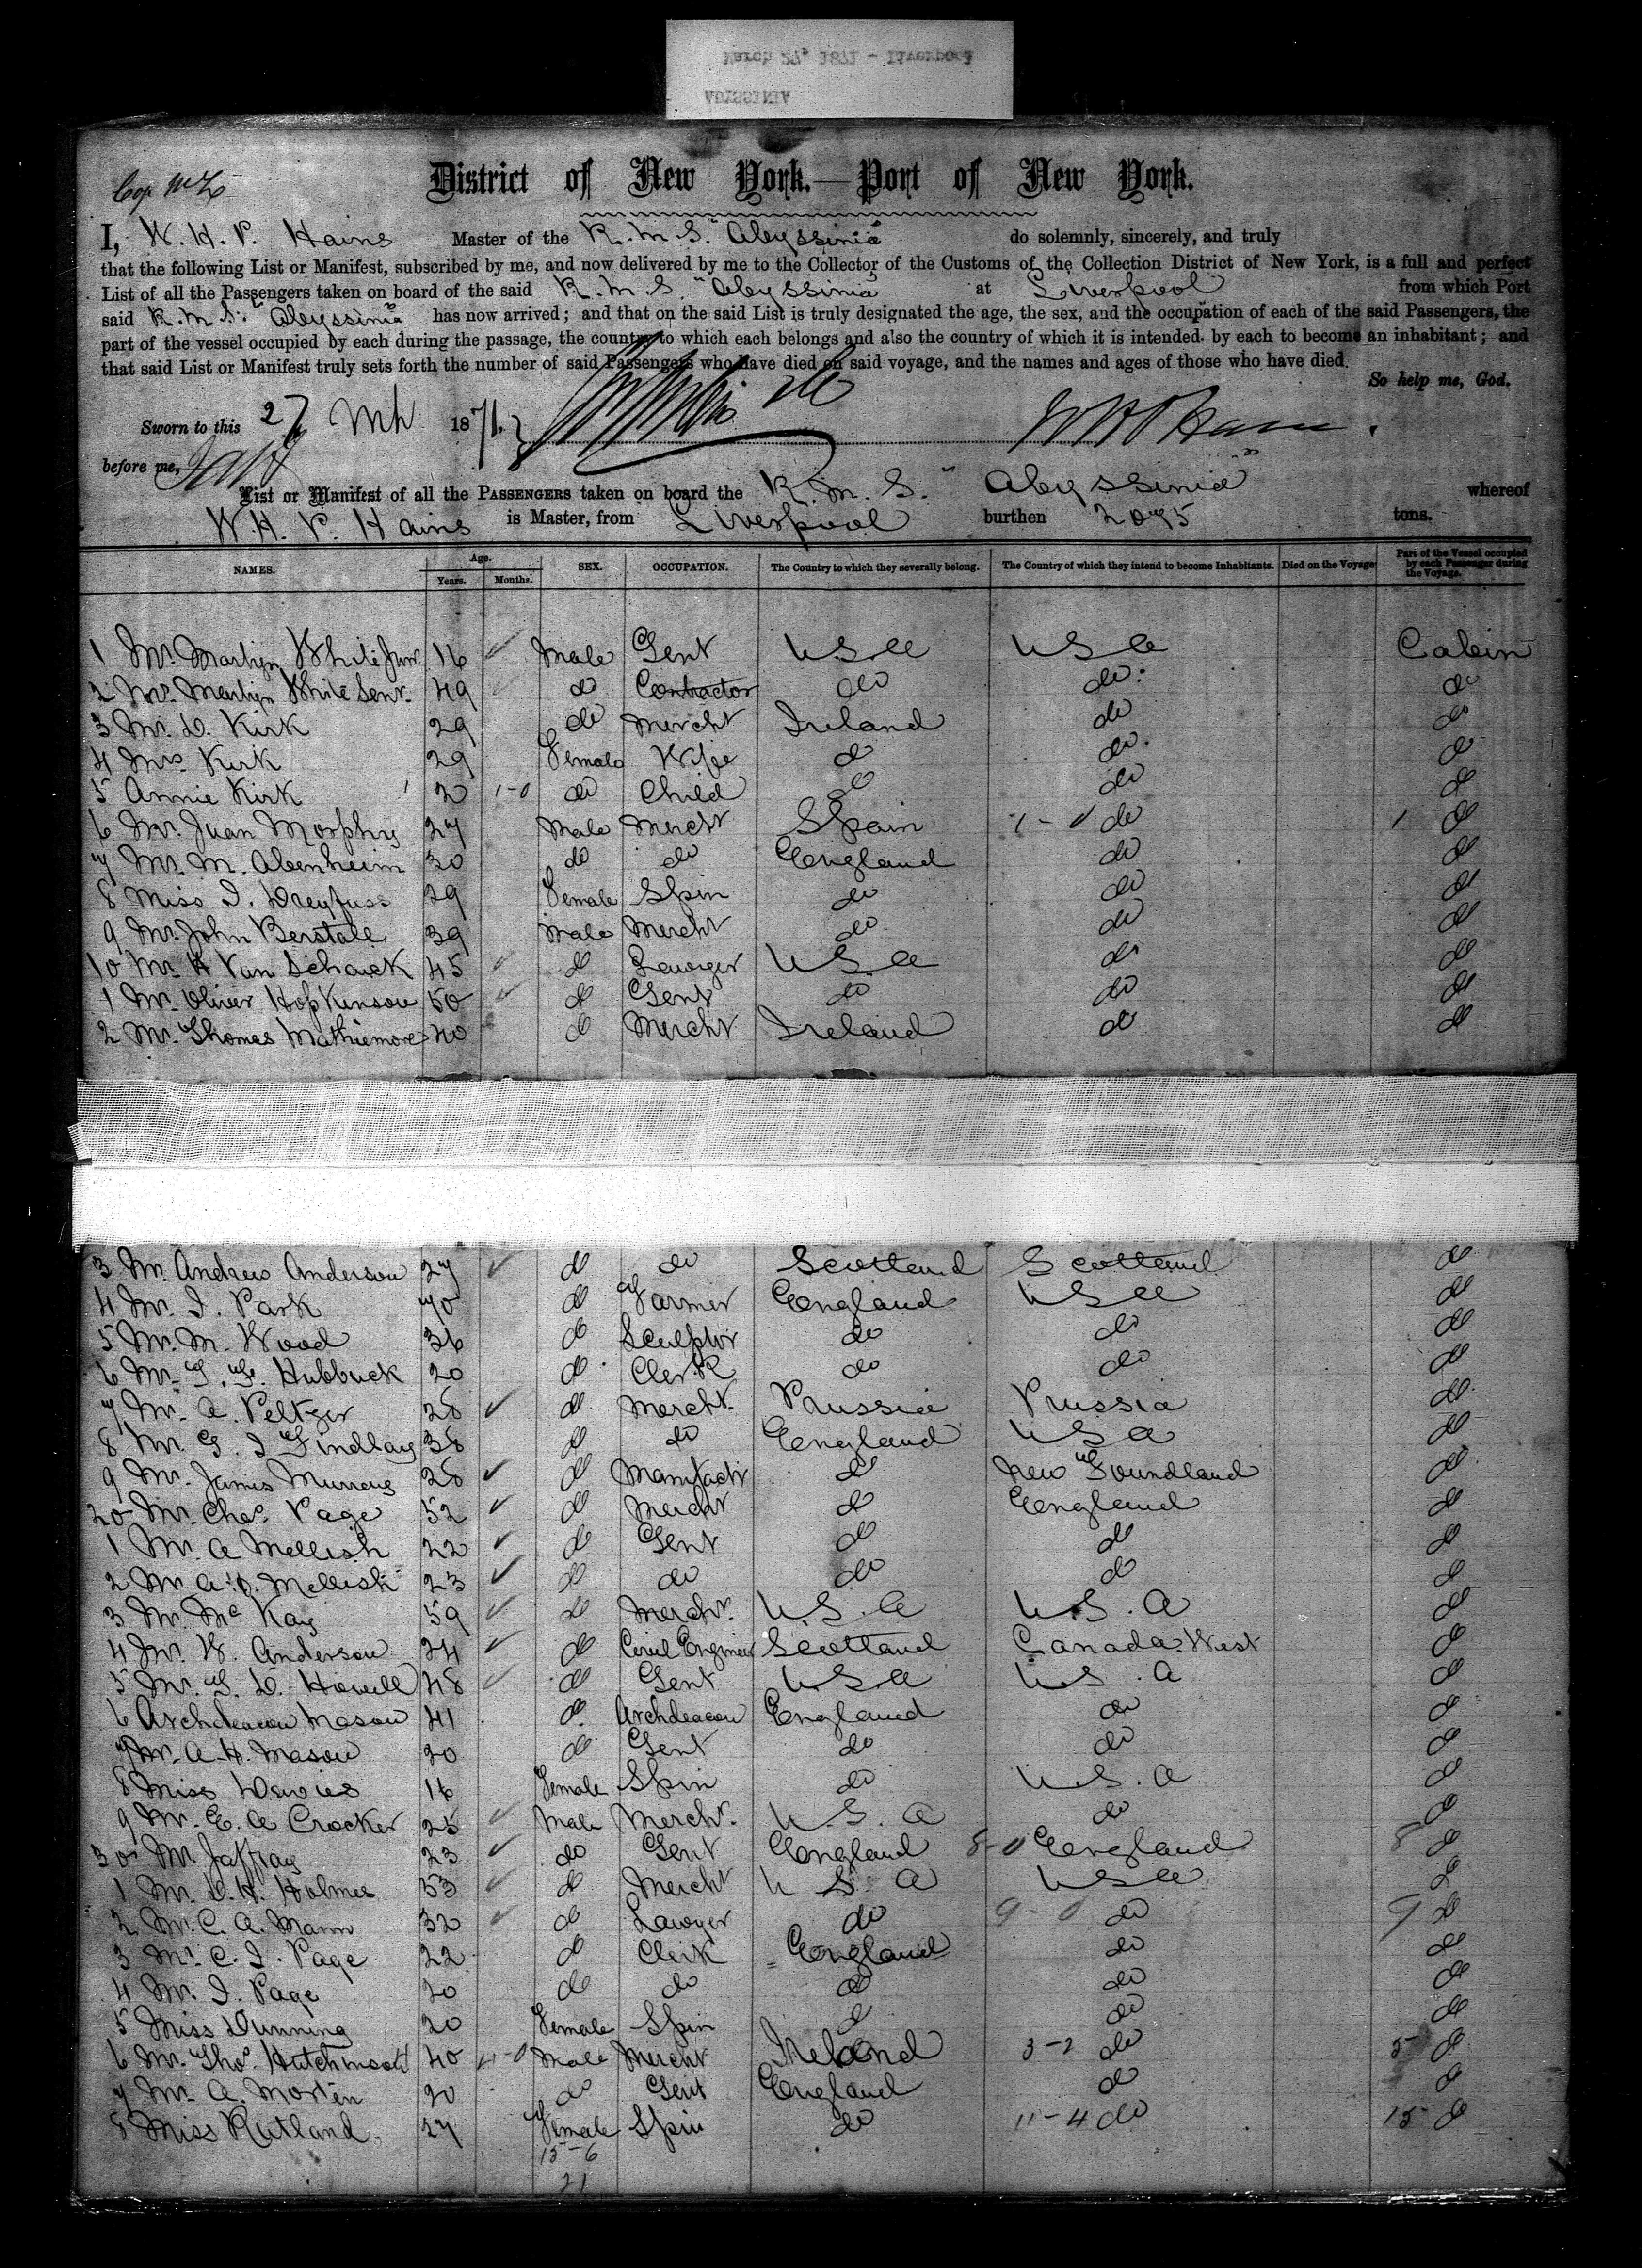 March 27, 1871 - Liverpool
ABYSSINIA
District of New York.—Port of New York.
I, W. H. P. Hains Master of the R.M.S. "Abyssinia" do solemnly, sincerely, and truly
that the following List or Manifest, subscribed by me, and now delivered by me to the Collector of the Customs of the Collection District of New York, is a full and perfect
List of all the Passengers taken on board of the said R.M.S. "Abyssinia" at Liverpool from which Port
said R.M.S. "Abyssinia" has now arrived; and that on the said List is truly designated the age, the sex, and the occupation of each of the said Passengers, the
part of the vessel occupied by each during the passage, the country to which each belongs and also the country of which it is intended by each to become an inhabitant; and
that said List or Manifest truly sets forth the number of said Passengers who have died on said voyage, and the names and ages of those who have died.
So help me, God.
Sworn to this 27 Mh 1871
before me,
List or Manifest of all the PASSENGERS taken on board the R.M.S. "Abyssinia" whereof
W. H. P. Hains is Master, from Liverpool burthen 2095 tons.
NAMES. Age. Years. Months. SEX. OCCUPATION. The Country to which they severally belong. The Country of which they intend to become Inhabitants. Died on the Voyage Part of the Vessel occupied by each Passenger during the Voyage.
1 Mr. Martyn White Junr. 16 Male Gent U S a U S a Cabin
2 Mr. Martyn White Senr. 49 do Contractor do do do
3 Mr. D. Kirk 29 do Mercht Ireland do do
4 Mrs Kirk 29 Female Wife do do do
5 Annie Kirk 2 1-0 do Child do do do
6 Mr. Juan Morphy 27 Male Mercht Spain 1-0 do 1 do
7 Mr. M. Abenheim 30 do do England do do
8 Miss I. Dreyfuss 29 Female Spin do do do
9 Mr. John Berstall 39 Male Mercht do do do
10 Mr. H Van Schaick 45 do Lawyer U S a do do
1 Mr. Oliver Hopkinson 50 do Gent do do do
2 Mr. Thomas Mathiemore 40 do Mercht Ireland do do
3 Mr. Andrew Anderson 27 do do Scotland Scotland do
4 Mr. I. Park 70 do Farmer England U S a do
5 Mr. M. Wood 36 do Sculptor do do do
6 Mr. Hubbuck 20 do Clerk do do do
7 Mr. A. Peltzer 28 do Mercht. Prussia Prussia do
8 Mr. G. I Findlay 38 do do England U S a do
9 Mr. James Murray 28 do Manufactr do New Foundland do
20 Mr. Chas. Page 52 do Mercht do England do
1 Mr. A Mellish 22 do Gent do do do
2 Mr A. Mellish 23 do do do do do
3 Mr. Mc Kay 59 do Mercht. U.S.A U.S.A do
4 Mr. W. Anderson 24 do Civil Engineer Scotland Canada West do
5 Mr. D. Howell 48 do Gent U.S.A U S.A do
6 Archdeacon Mason 41 do Archdeacon England do do
7 Mr. A. H. Mason 20 do Gent do do do
8 Miss Davies 16 Female Spin do U.S.A do
9 Mr. E. A Crocker 25 Male Mercht. U.S.A do do
30 Mr. Jaffray 23 do Gent England 8-0 England 8 do
1 Mr. D. H. Holmes 53 do Mercht U S A U S a do
2 Mr. C. A. Mann 32 do Lawyer do 9-0 do 9 do
3 Mr. C. I. Page 22 do Clerk England do do
4 Mr. I. Page 20 do do do do do
5 Miss Dunning 20 Female Spin do do do
6 Mr. Thos. Hutchinson 40 4-0 Male Mercht Ireland 3-2 do 5 do
7 Mr. A. Morten 20 do Gent England do do
8 Miss Rutland 27 Female Spin do 11-4 do 15 do
15-6
21